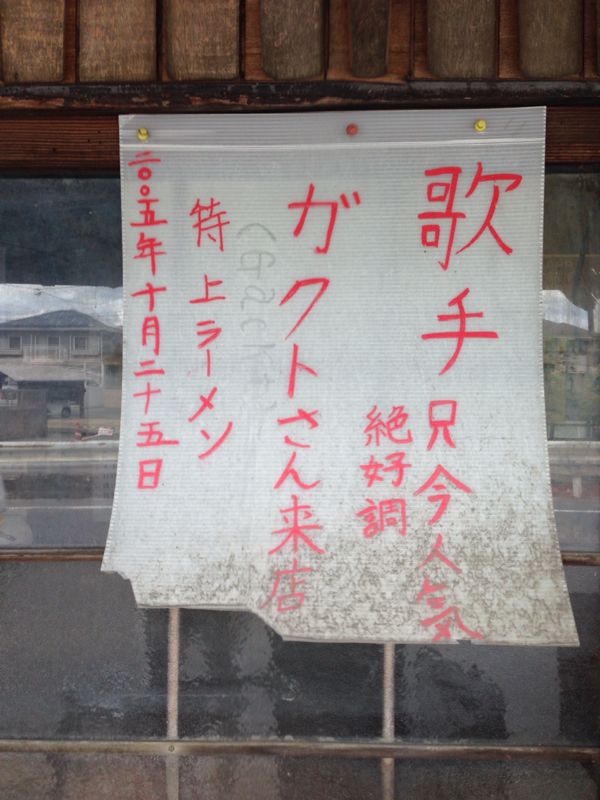 歌手只今人気
絶好調
ガクトさん来店
特上ラーメン
二〇〇五年十月二十五日